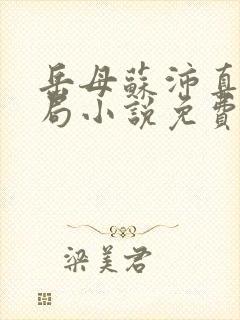 岳母蘇沛真
局小說免費
梁美君